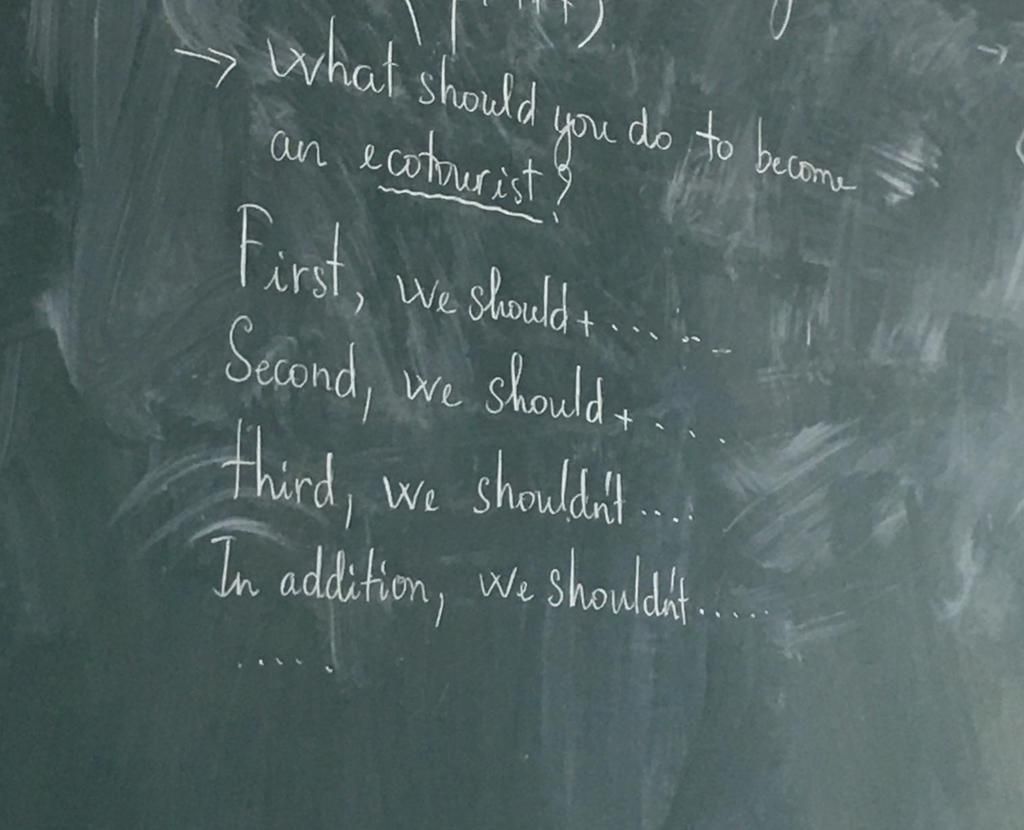 → What should you do to become
an ecotourist?
First, we should + ......
Second, we should + ....
third, we shouldn't ....
In addition, we shouldn't .....
.....